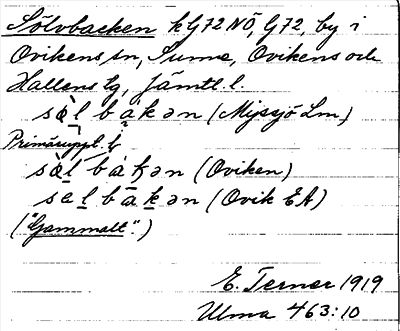 Sölvbacken k G 72 NÖ, G 72, by i
Ovikens sn, Sunne, Ovikens och
Hallens tg, Jämtl. l.
sə̀l bàkən (Myssjö Lm)
Primäruppl. i
sə̀l bàkən (Oviken)
səl bakən (Ovik EA)
("Gammalt".)
E. Terner 1919
Ulma 463:10